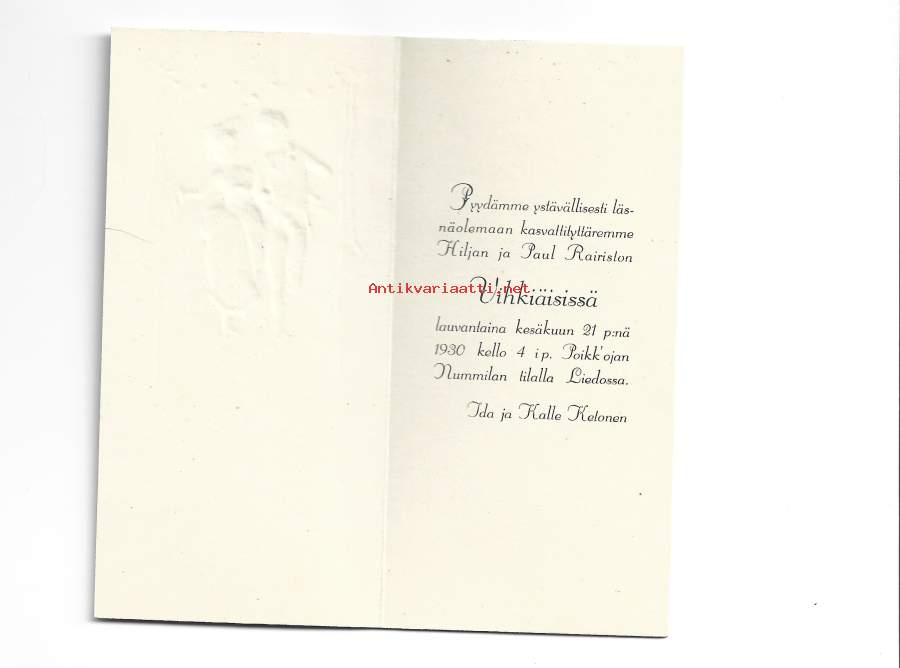 Pyydämme ystävällisesti läs-
näolemaan kasvattityttäremme
Hiljan ja Paul Rairiston
Antikvariaatti.net
Vihkiäisissä
lauvantaina kesäkuun 21 p:nä
1930 kello 4 i p. Poikk'ojan
Nummilan tilalla Liedossa.
Ida ja Kalle Ketonen